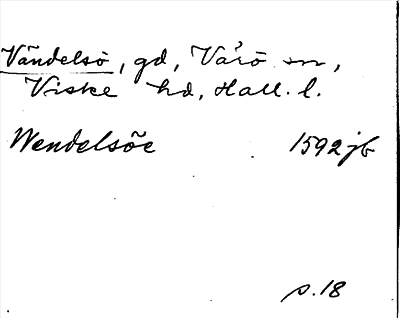 Vändelsö, gd, Värö sn,
Viske hd, Hall. l.
Wendelsöe 1592 jb
s. 18